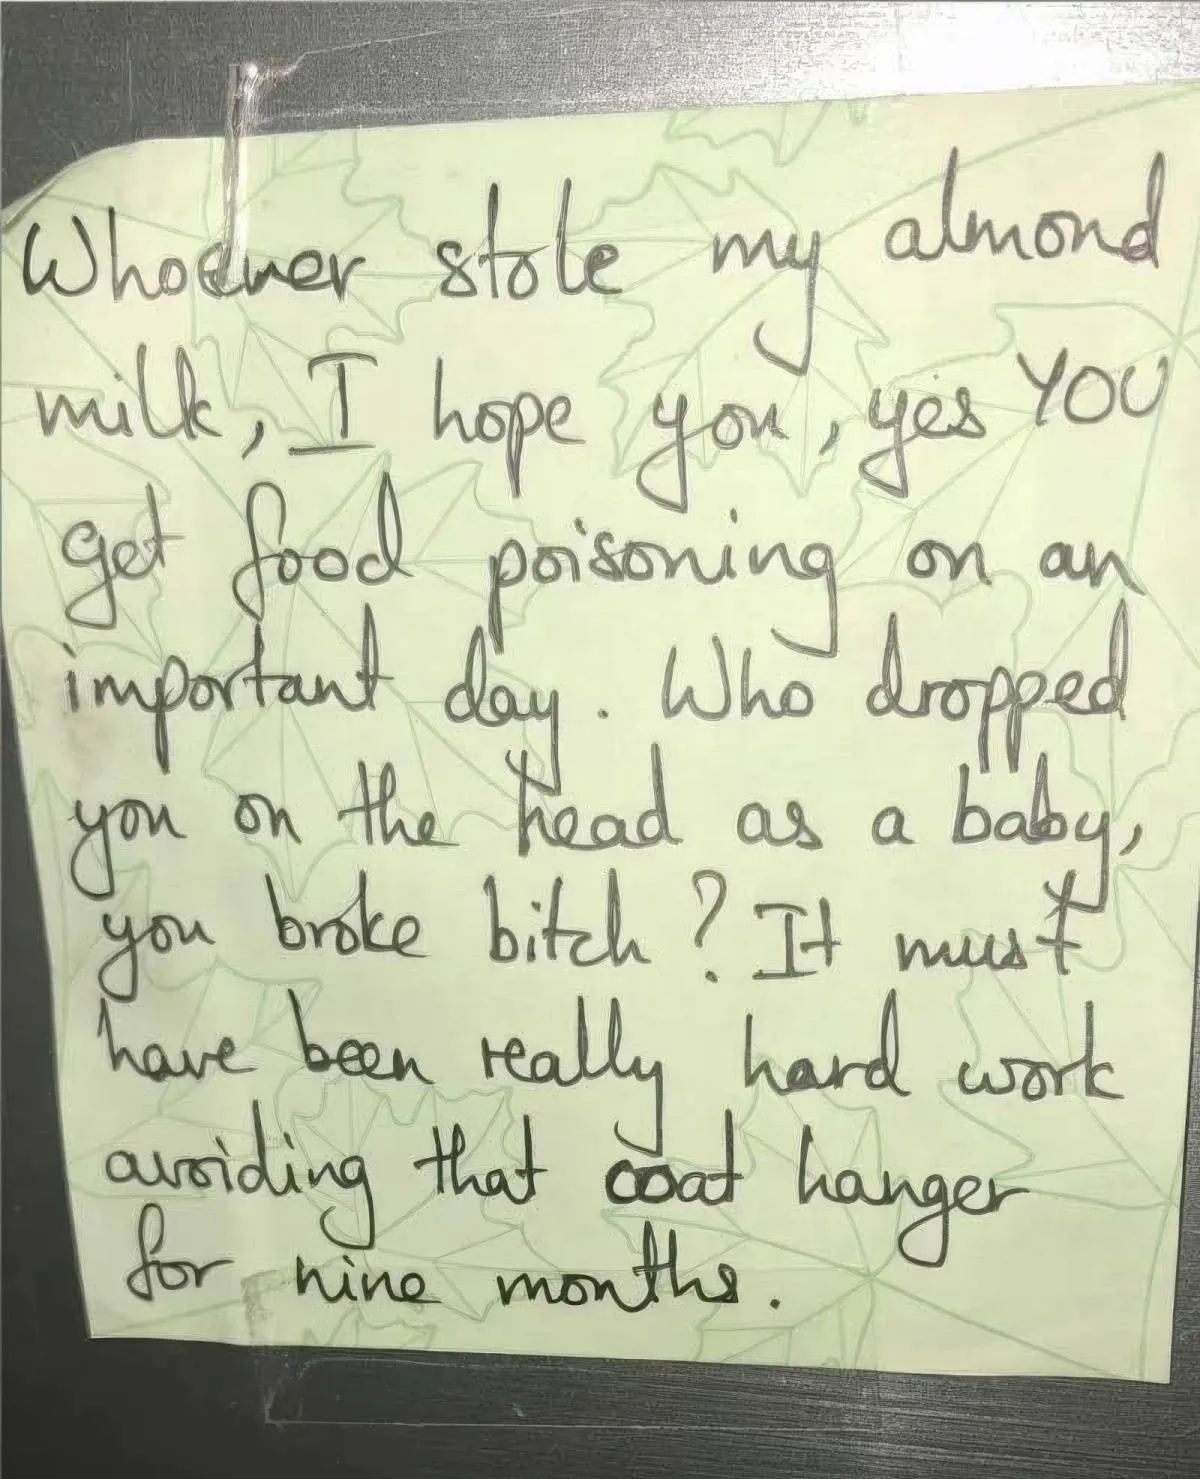 Whoever stole my almond
milk, I hope you, yes YOU
get food poisoning on an
important day. Who dropped
you on the head as a baby,
you broke bitch? It must
have been really hard work
avoiding that coat hanger
for nine months.